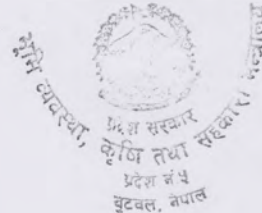 भूमि व्यवस्था, कृषि तथा सहकारी मन्त्रालय
प्रदेश सरकार
प्रदेश नं ५
बुटवल, नेपाल